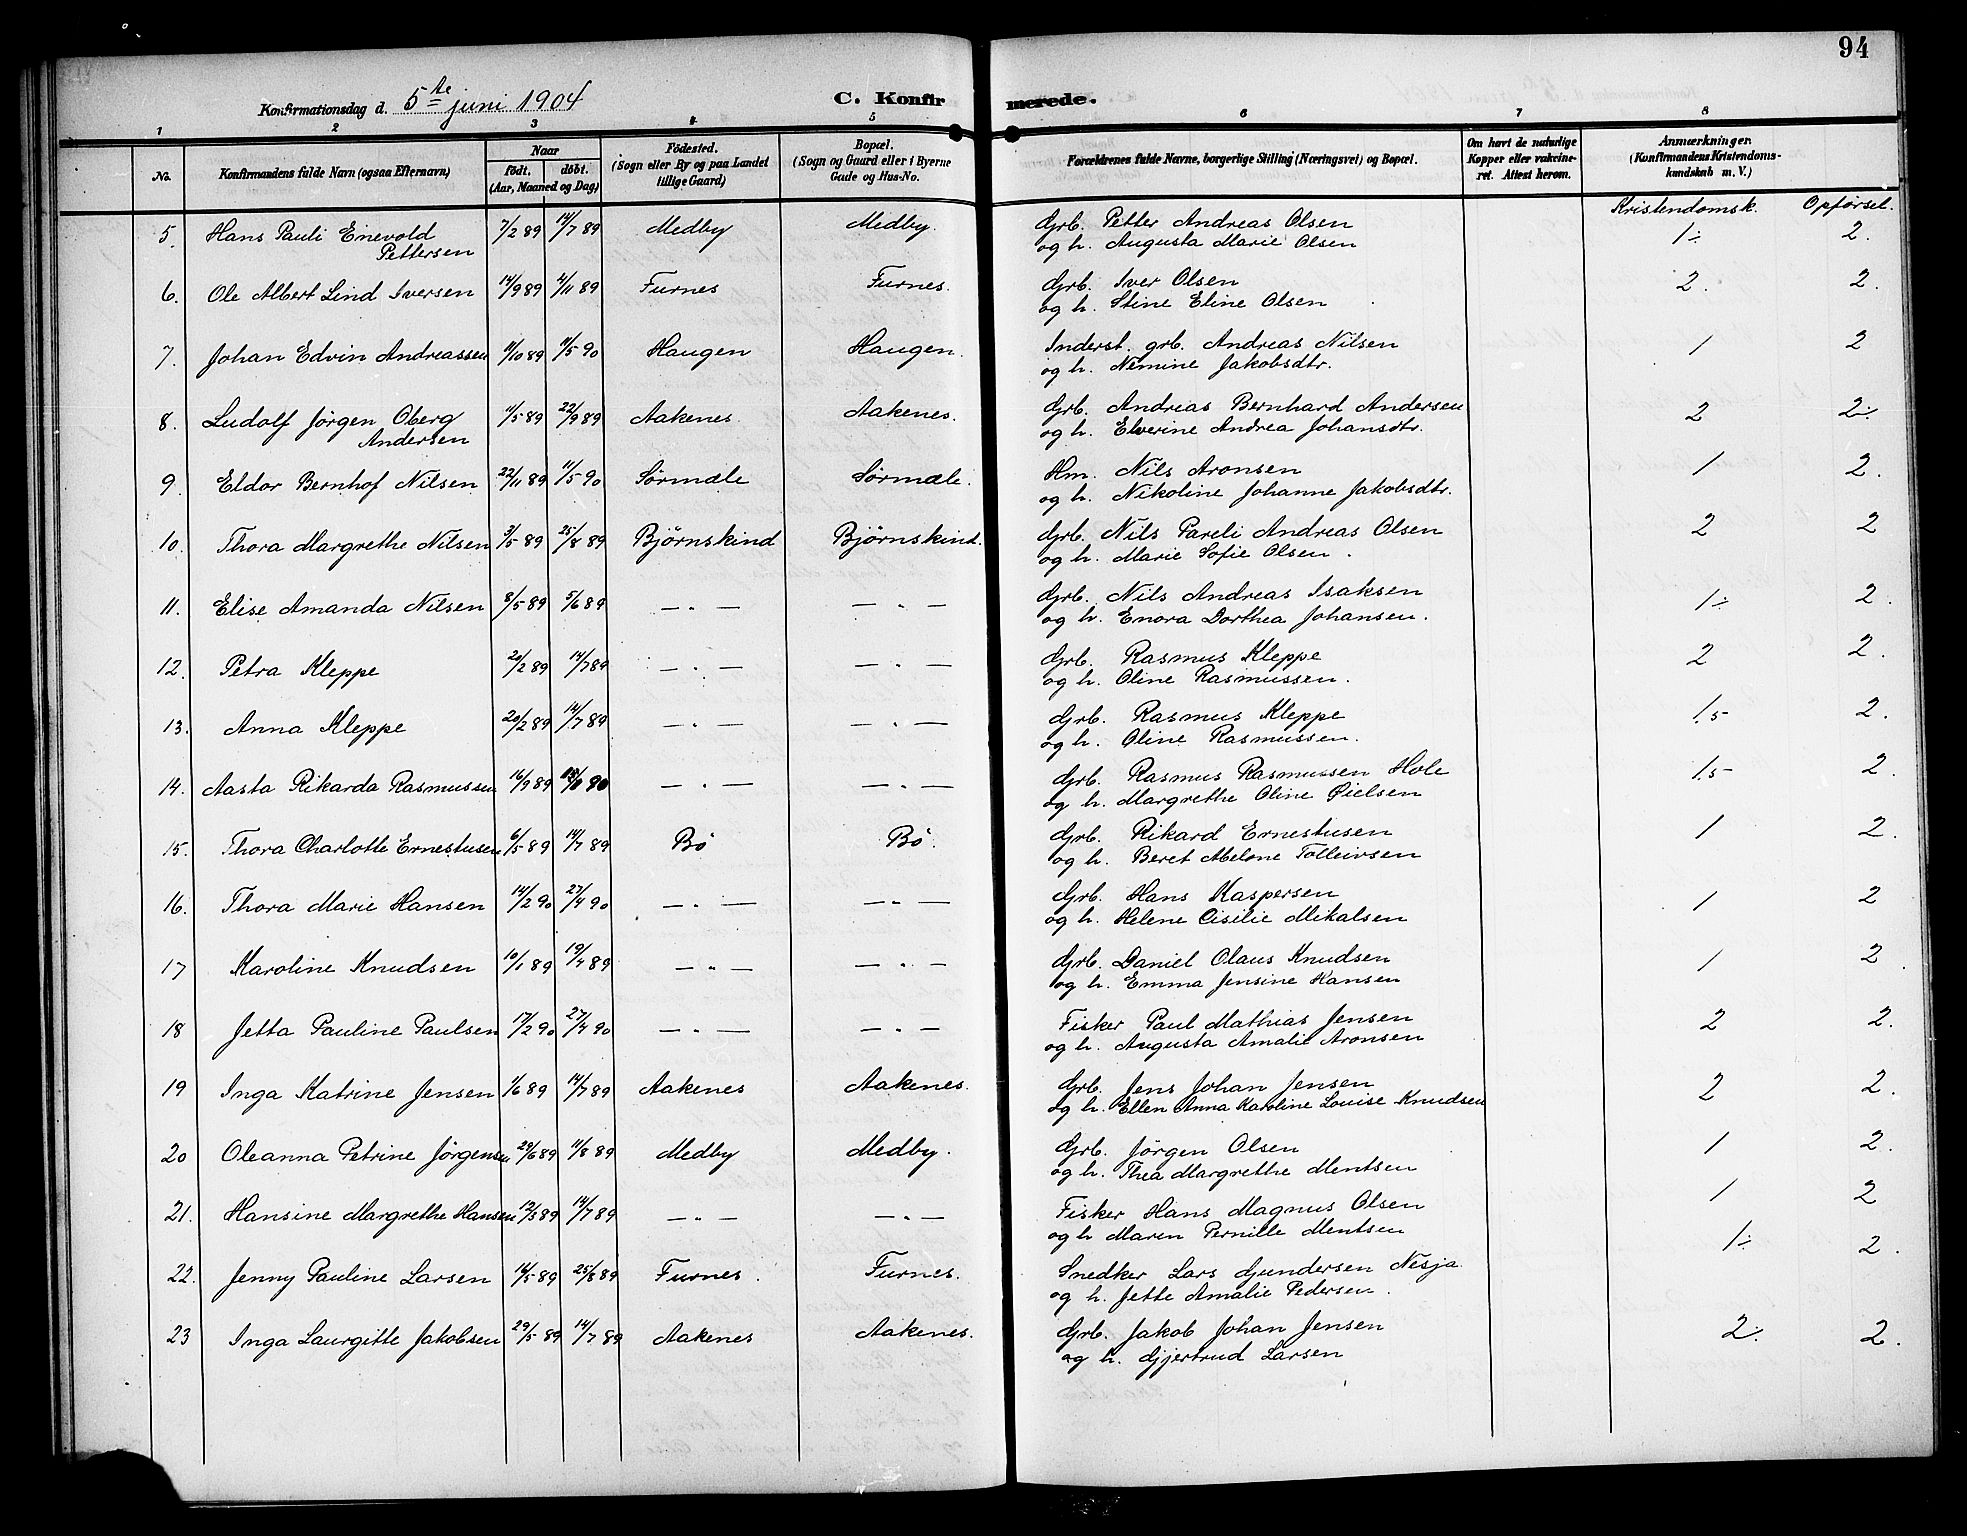 94
Konfirmationsdag d. 5te juni 1904
C. Konfirmerede.
1 2 3 4 5 6 7 8
No.
Konfirmandens fulde Navn (ogsaa Efternavn)
Naar
födt. döbt.
(Aar, Maaned og Dag)
Födested.
(Sogn eller By og paa Landet
tillige Gaard)
Bopæl.
(Sogn og Gaard eller i Byerne
Gade og Hus-No.
Forældrenes fulde Navne, borgerlige Stilling (Næringsvei) og Bopæl.
Om havt de naturlige
Kopper eller vakcine-
ret. Attest herom.
Anmærkninger
(Konfirmandens Kristendoms-
kundskab m. V.)
Kristendomsk. Opførsel.
5. Hans Pauli Einevold 7/2 89 14/7 89 Medby Medby. Grb. Petter Andreas Olsen 1÷ 2.
Pettersen og h. Augusta Marie Olsen
6. Ole Albert Lind Iversen 14/9 89 4/11 89 Furnes Furnes. Grb. Iver Olsen 2. 2.
og h. Stine Eline Olsen
7. Johan Edvin Andreassen 11/10 89 11/5 90 Haugen Haugen. Inderst. grb. Andreas Nilsen 1 2
og h. Nemine Jakobsdtr.
8. Ludolf Jørgen Oberg 11/5 89 22/9 89 Aakenes. Aakenes. Grb. Andreas Bernhard Andersen 2 2÷
Andersen og h. Elverine Andrea Johansdtr.
9. Eldor Bernhof Nilsen 22/11 89 11/5 90 Sørmæle Sørmæle. Hm. Nils Aronsen 1 2.
og h. Nikoline Johanne Jakobsdtr.
10. Thora Margrethe Nilsen 3/5 89 25/8 89 Bjørnskind Bjørnskind. Grb. Nils Pareli Andreas Olsen 2 2
og h. Marie Sofie Olsen.
11. Elise Amanda Nilsen 8/5 89 5/6 89 — " — — " — Grb. Nils Andreas Isaksen 1÷ 2.
og h. Enora Dorthea Johansen.
12. Petra Kleppe 20/2 89 14/7 89 — " — — " — Grb. Rasmus Kleppe 2 2.
og h. Oline Rasmussen.
13. Anna Kleppe 20/2 89 14/7 89 — " — — " — Grb. Rasmus Kleppe 1.5 2.
og h. Oline Rasmussen.
14. Aasta Rikarda Rasmussen 16/9 89 — " — — " — Grb. Rasmus Rasmussen Hole 1.5 2.
og h. Margrethe Oline Øielsen
15. Thora Charlotte Ernestusen 6/5 89 14/7 89 Bø Bø. Grb. Rikard Ernestusen 1 2.
og h. Beret Tolleivsen
16. Thora Marie Hansen 14/2 90 27/4 90 — " — — " — Grb. Hans Kaspersen 1 2
og h. Helene Cisilie Mikalsen
17 Karoline Knudsen 10/1 89 19/4 89 — " — — " — Grb. Daniel Olaus Knudsen 1 2.
og h. Emma Jensine Hansen
18 Jetta Pauline Paulsen 17/2 90 27/4 90 — " — — " — Fisker Paul Mathias Jensen 2 2.
og h. Augusta Amalie Aronsen
19 Inga Katrine Jensen 1/6 89 14/7 89 Aakenes Aakenes. Grb. Jens Johan Jensen 2 2.
og h. Ellen Anna Karoline Louise Knudsen
20 Oleanna Petrine Jørgensen 29/6 89 11/8 89 Medby Medby. Grb. Jørgen Olsen 1 2.
og h. Thea Margrethe Mentsen
21. Hansine Margrethe Hansen 14/7 89 — " — — " — Fisker Hans Magnus Olsen 1 2
og h Maren Pernille Mentsen
22. Jenny Pauline Larsen 16/5 89 25/8 89 Furnes. Furnes. Snedker Lars Gundersen Nesja 1÷ 2.
og h. Jette Amalie Pedersen.
23 Inga Laurgitte Jakobsen 29/5 89 14/7 89 Aakenes Aakenes. Grb. Jakob Johan Jensen 2. 2.
og h. Gjertrud Larsen